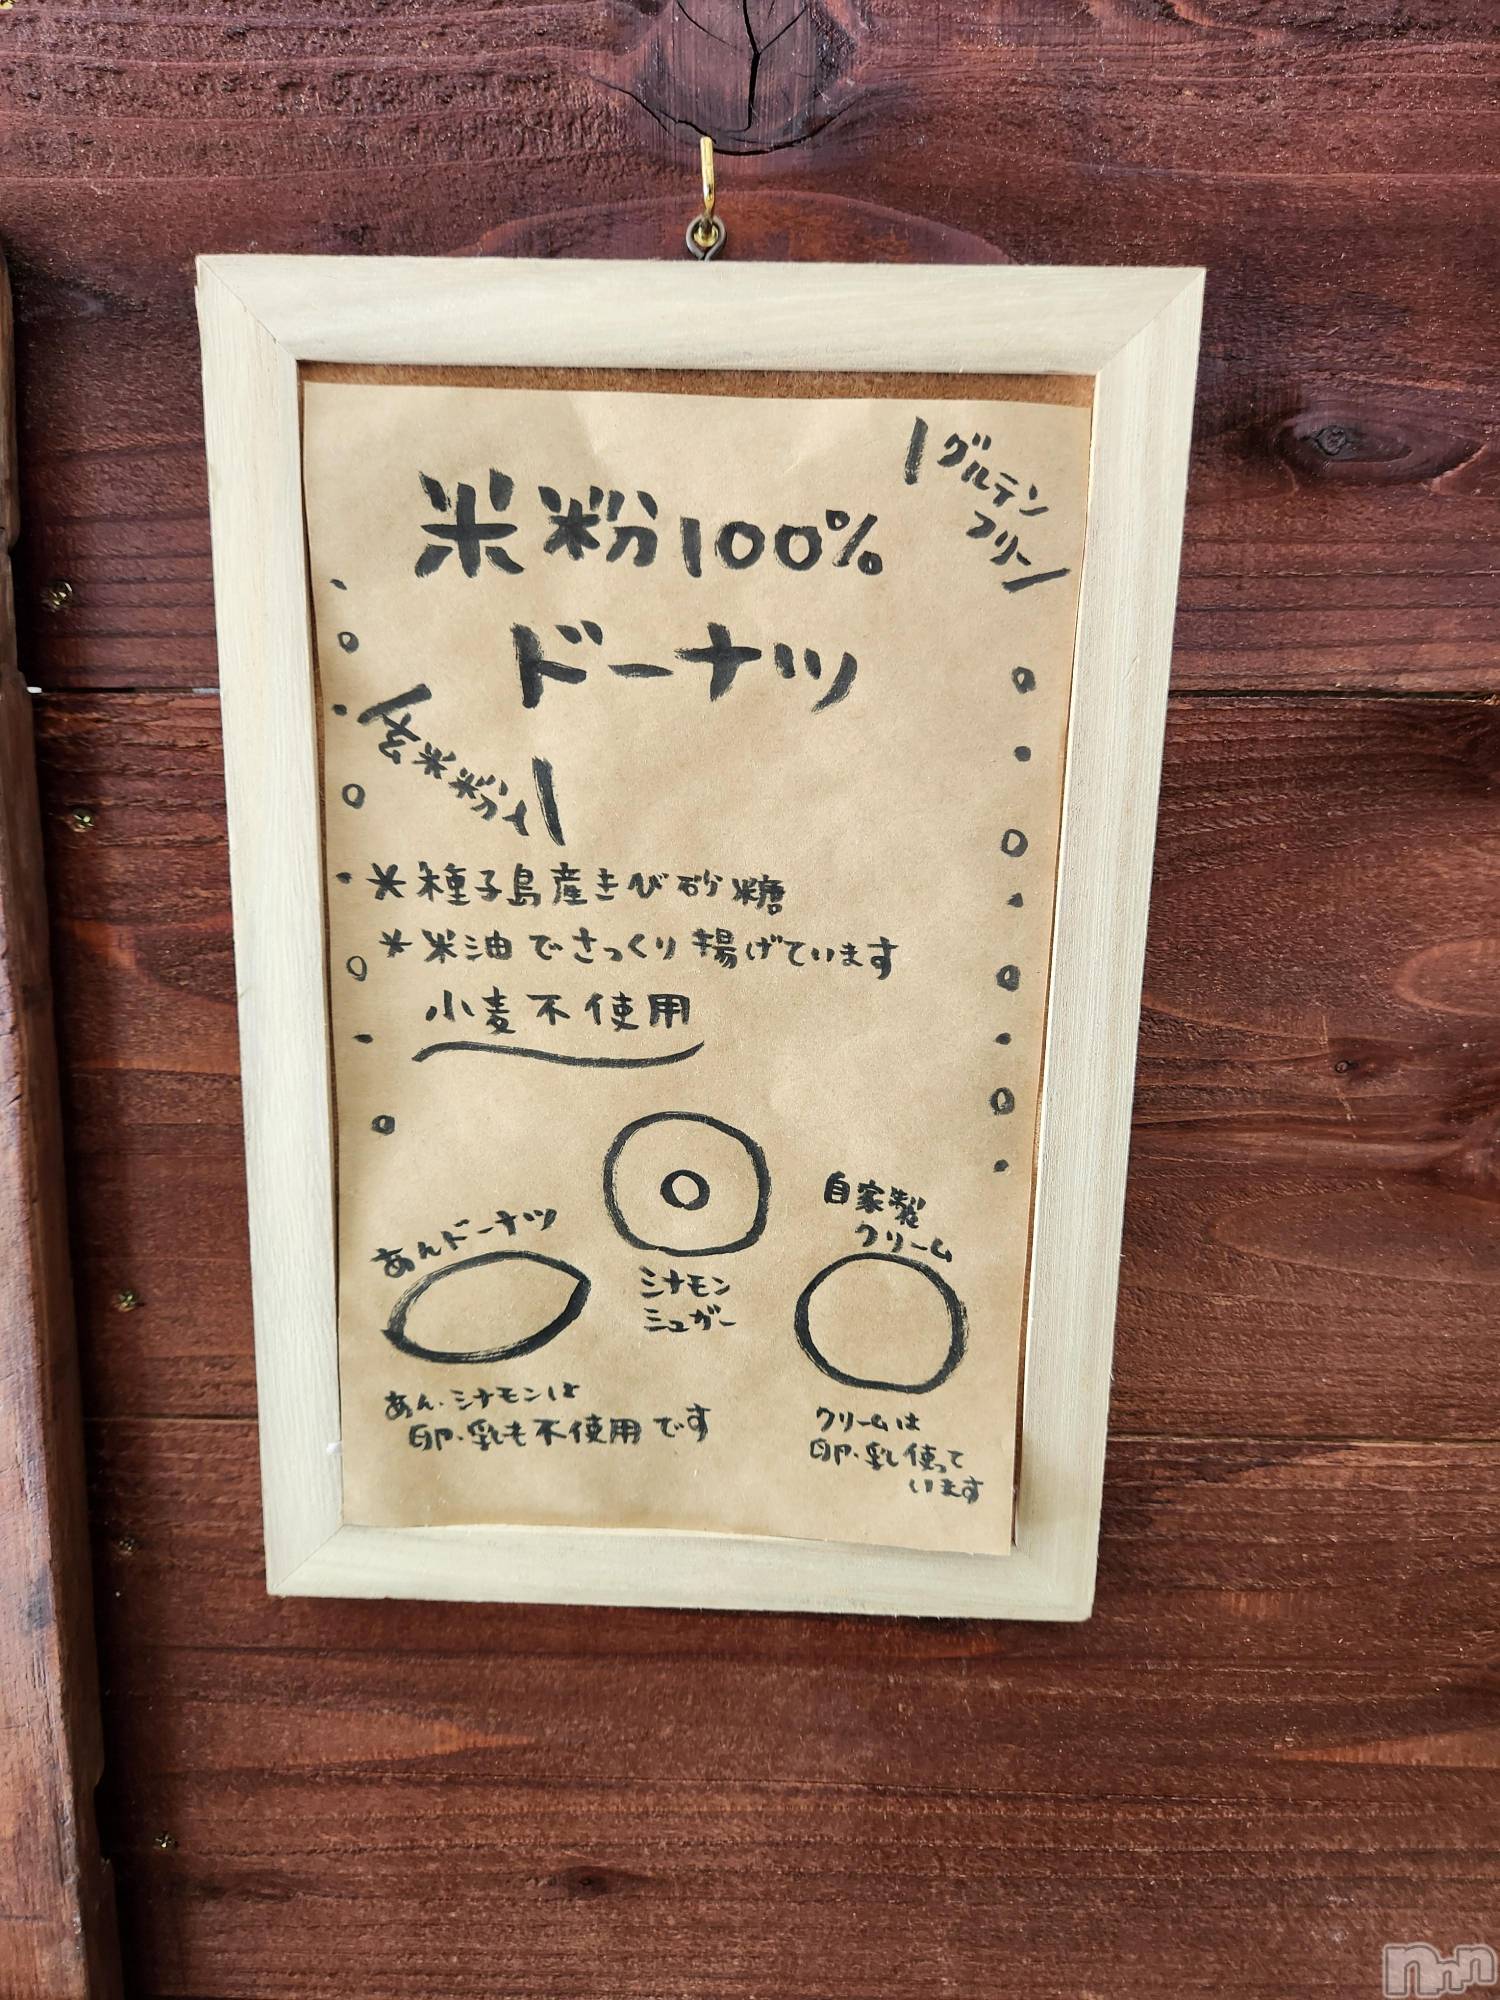 グルテン
フリー
米粉100%
ドーナツ
玄米粉入
*種子島産きび砂糖
*米油でさっくり揚げています
小麦不使用
あんドーナツ
シナモン
シュガー
自家製
クリーム
あん・シナモンは
卵・乳も不使用です
クリームは
卵・乳使って
います
nnn